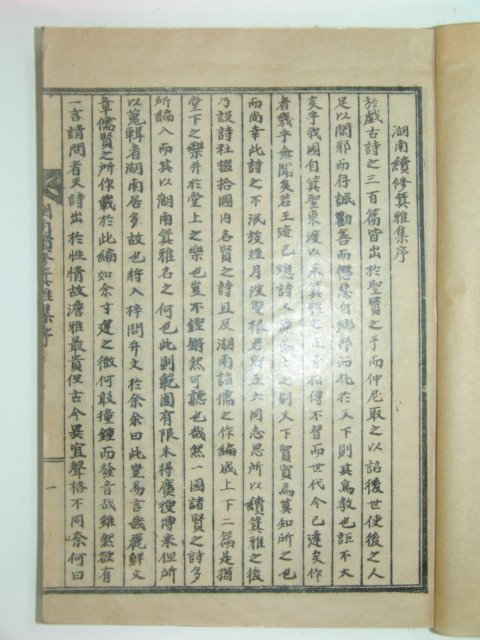 湖南續修箕雅集序
於戲古詩之三百篇皆出於聖賢之手而仲尼取之以詔後世使後之人
足以閑邪而存誠勸善而懲惡自鄉邦而化於天下則其爲敎也詎不大
矣乎我國自箕聖東渡以來箕雅之上有稍得不習而世代今已遠矣作
者幾乎無聞矣若王迹已熄詩天下貿貿焉莫知所之也
而尚幸此詩之不泯族煙月波雙根者五六同志思所以續箕雅之後
乃設詩社掇拾國內各賢之詩且及湖南諸儒之作編成上下二篇是猶
堂下之樂并於堂上之樂也豈不鏗鏘然可聽也哉然一國諸賢之詩多
所編入而其以湖南箕雅名之何也此則範圍有限未得廣搜博采但所
以蒐輯者湖南居多故也將入梓問弁文於余余曰此豈易言哉麗鮮文
章儒賢之所作載於此編如余寸筳之微何敢撞鍾而發音哉雖然欲有
一言請問者夫詩出於性情故澹雅最貴但古今異宜聲格不同奈何曰
湖南續修箕雅集序
一